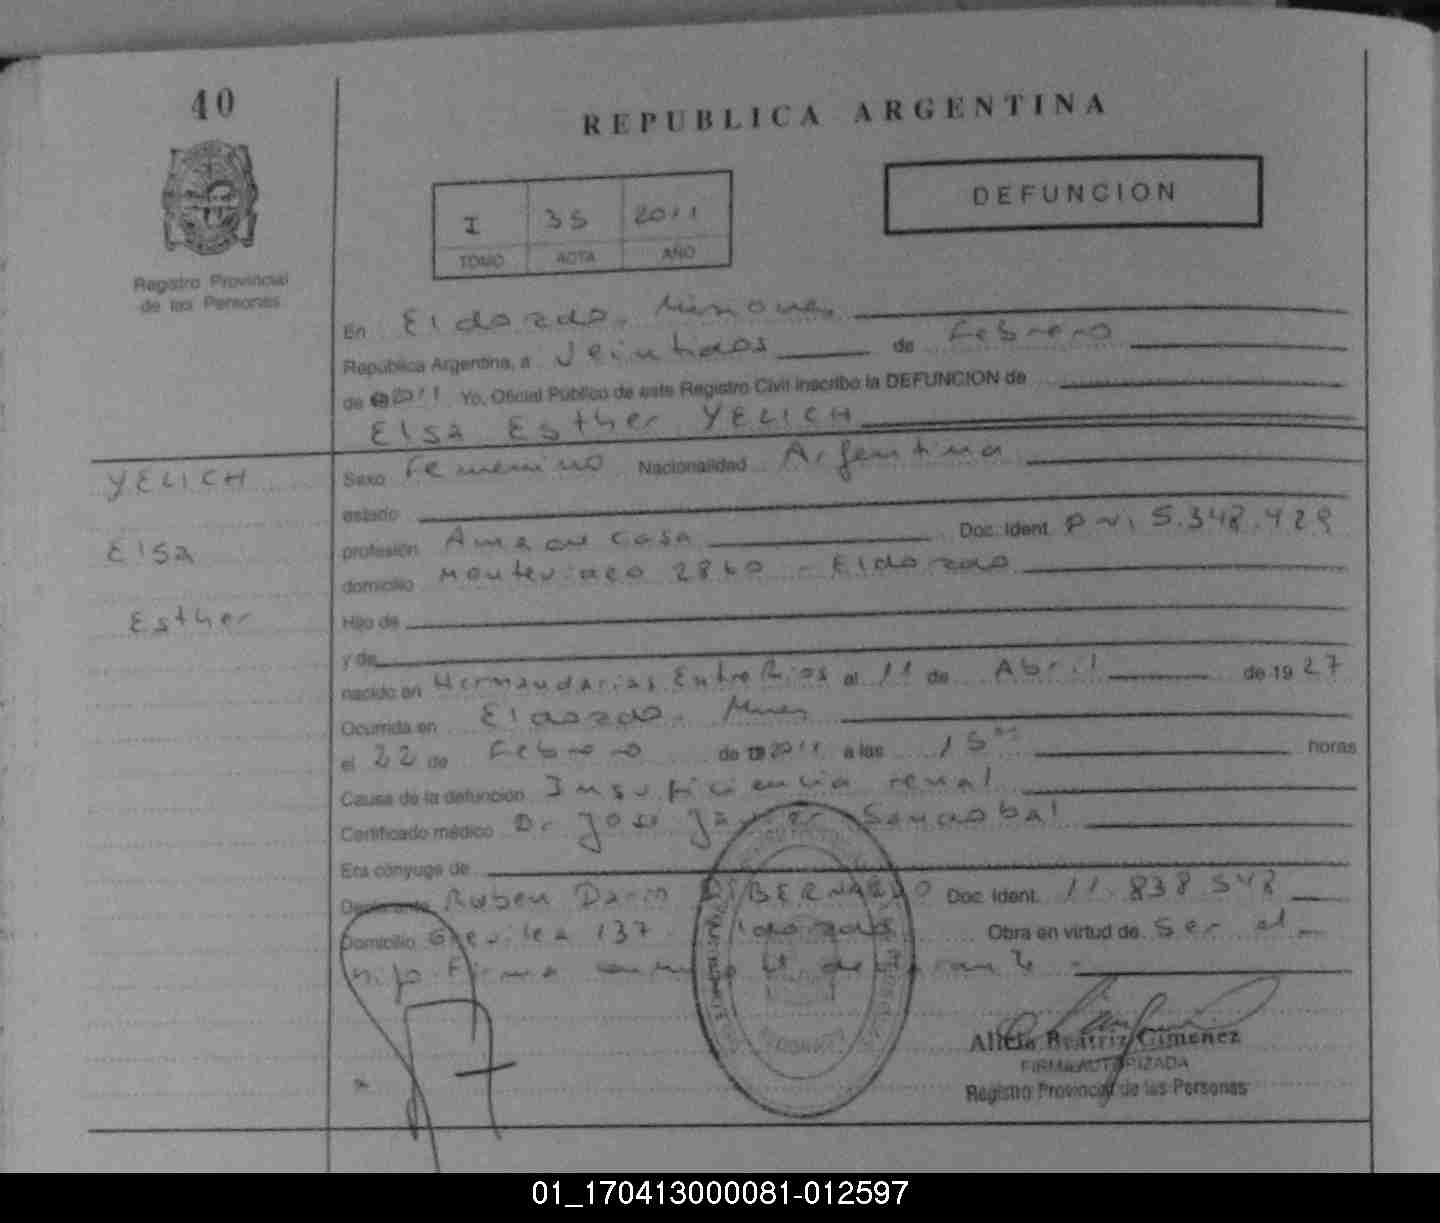 40
REPUBLICA ARGENTINA
DEFUNCION
I 35 2011
TOMO ACTA AÑO
Registro Provincial
de las Personas
En Eldorado, Misiones
República Argentina, a Veintidos de Febrero
de 2011 Yo, Oficial Público de este Registro Civil inscribo la DEFUNCION de
Elsa Esther YELICH
YELICH
Elsa
Esther
Sexo Femenino Nacionalidad Argentina
estado
profesión Ama de casa Doc. Ident. 5.348.429
domicilio Montevideo 2860 - Eldorado
Hijo de
y de
nacido en Hernandarias Entre Rios el 11 de Abril de 19 27
Ocurrida en Eldorado, Mnes
el 22 de Febrero de 2011 a las 15 horas
Causa de la defunción Insuficiencia renal
Certificado médico Dr José Javier
Era cónyuge de
Declarante Ruben Dario DIBERNARDO Doc. Ident. 11.838.548
Domicilio 137 Eldorado Obra en virtud de Ser el
hijo Firma el declarante
Alicia Beatriz Gimenez
FIRMA AUTORIZADA
Registro Provincial de las Personas
01_170413000081-012597